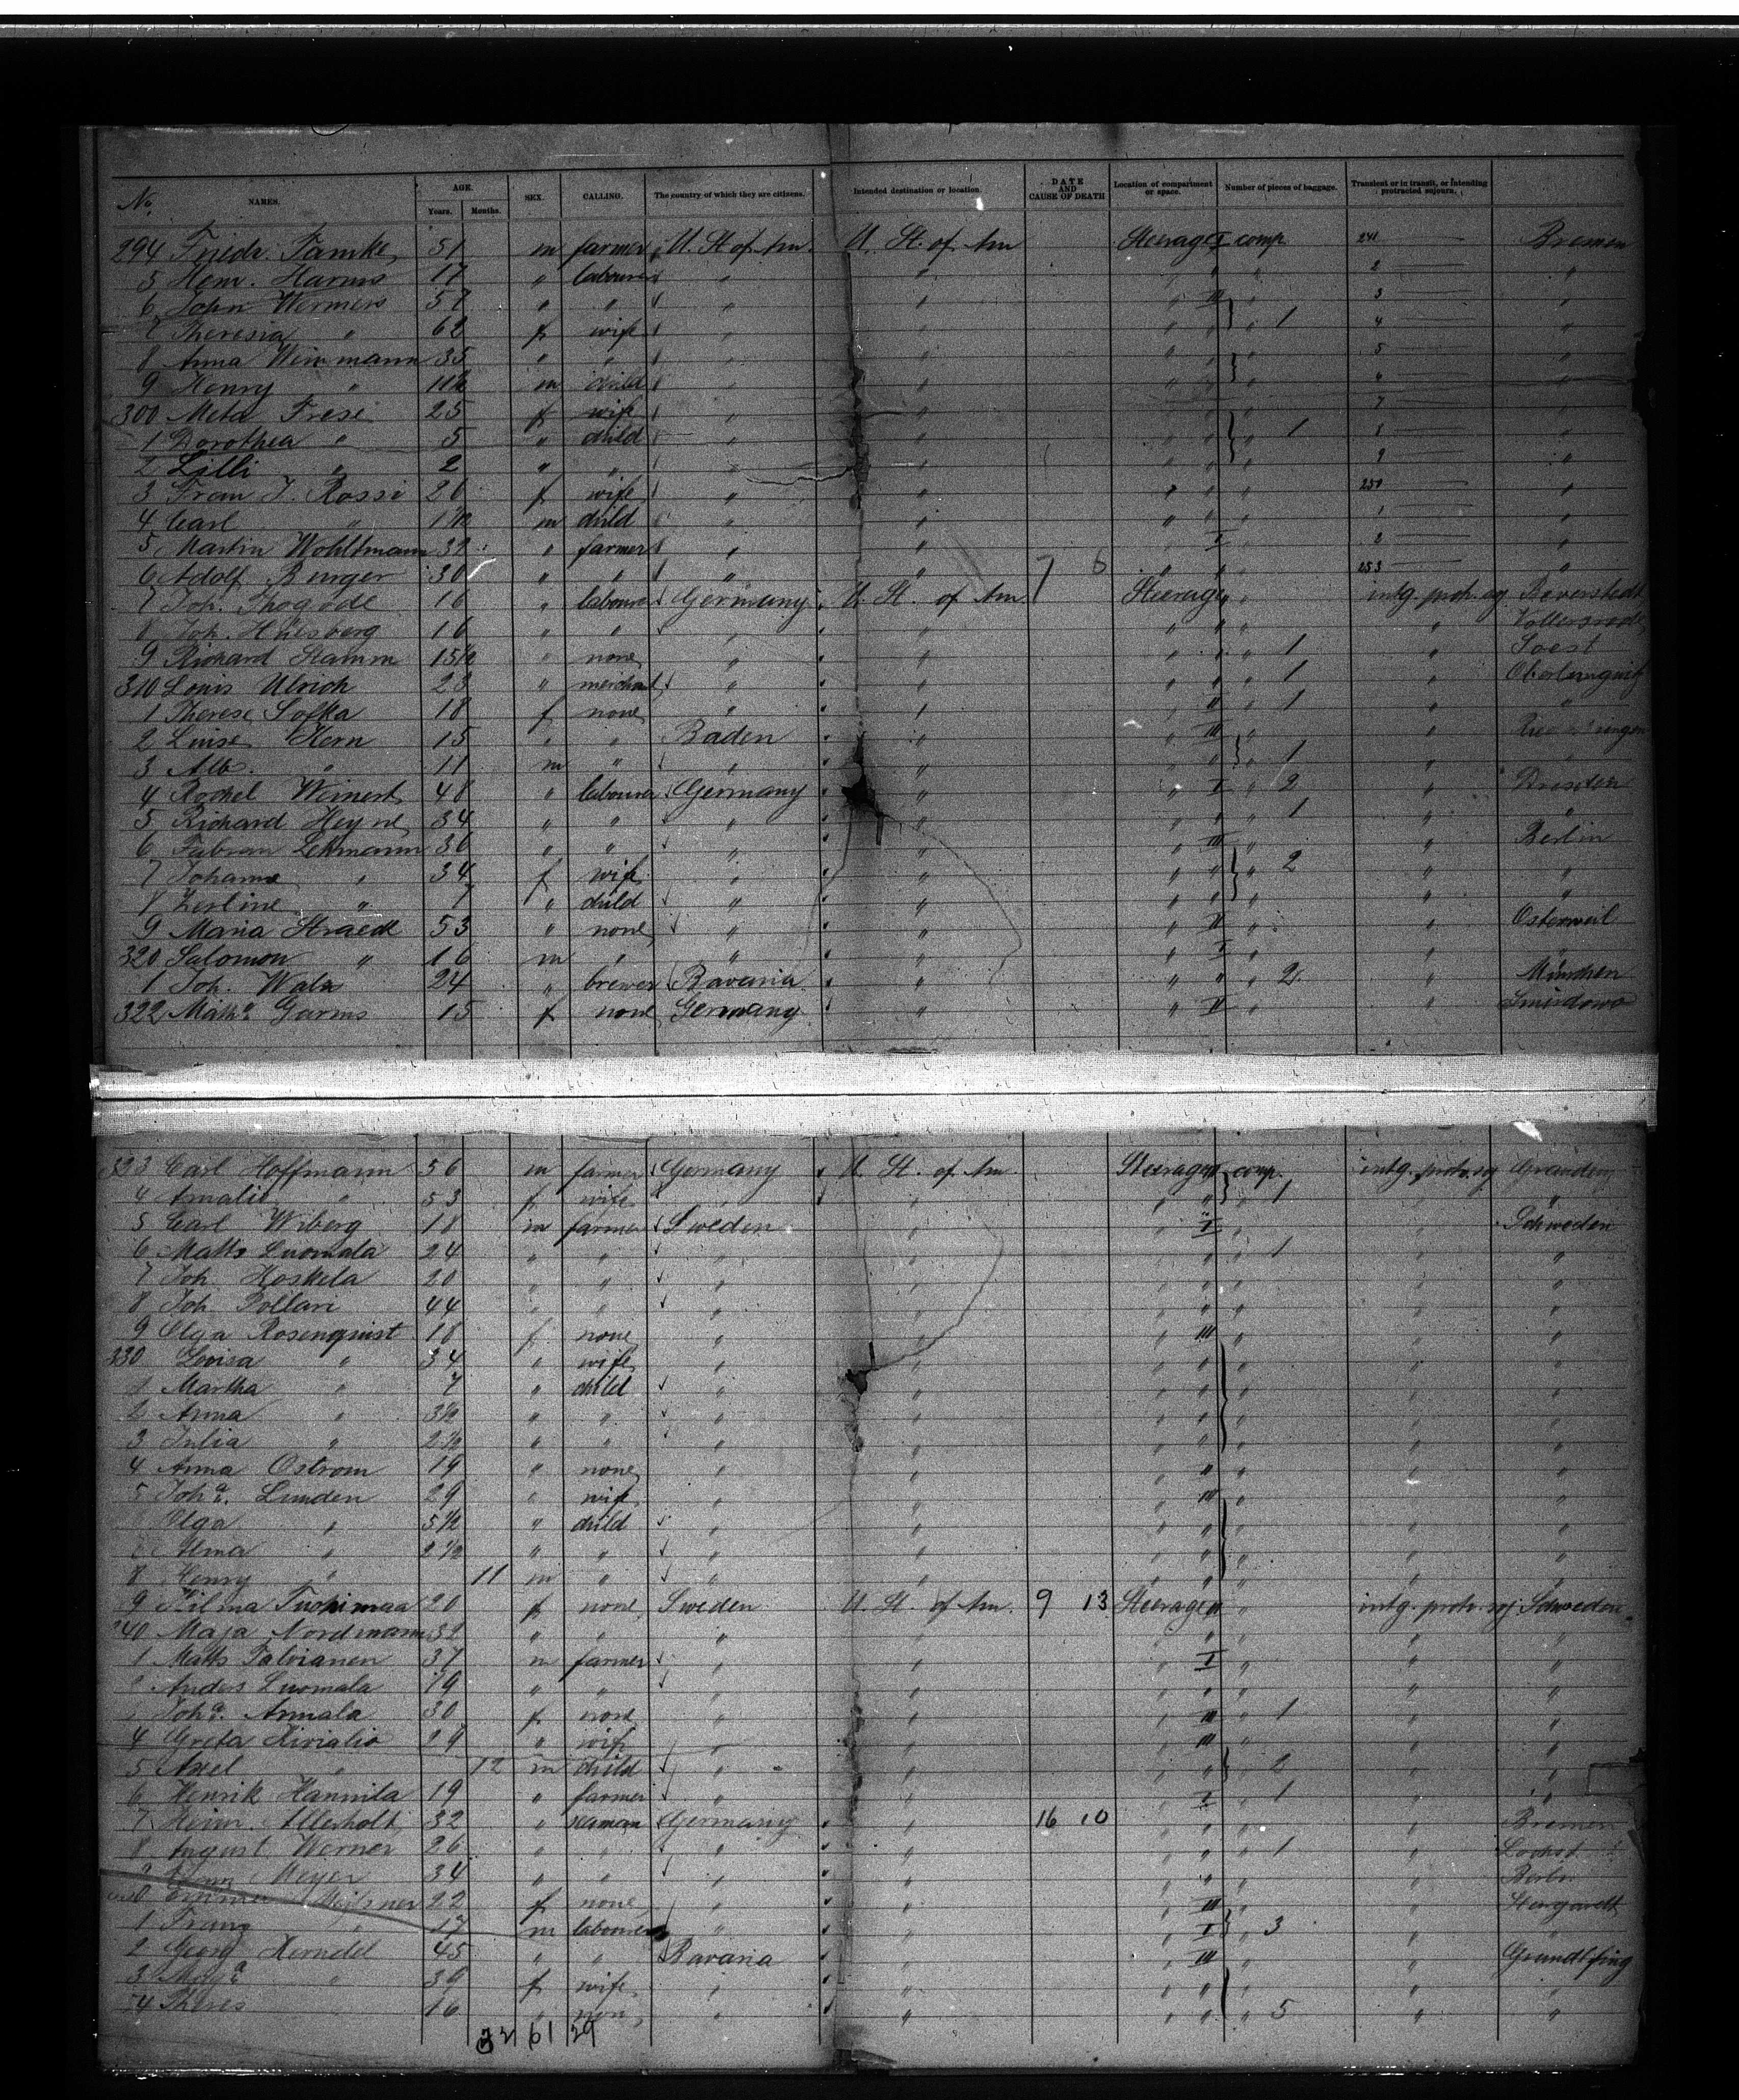 No. NAMES. AGE. Years. Months. SEX. CALLING. The country of which they are citizens. Intended destination or location. DATE AND CAUSE OF DEATH Location of compartment or space. Number of pieces of baggage. Transient or in transit, or intending protracted sojourn.
294 Friedr. Famke 51 m farmer U. St. of Am. U. St. of Am Steerage I comp. 241 Bremen
5 Henr. Harms 17 " labourer " " " " " 2 "
6 John Wermers 57 " " " " " III " 3 "
7 Theresia " 62 f wife " " " " " 1 4 "
8 Anna Weinmann 35 " " " " " " " 5 "
9 Henry " m child " " " " " 6 "
300 Meta Frese 25 f wife " " " " " 7 "
1 Dorothea " 5 " child " " " " " 1 8 "
2 Lilli " 2 " " " " " " " 9 "
3 Frau J. Rossi 26 f wife " " " " " 250 "
4 Carl " m child " " " " " 1 "
5 Martin Wohltmann 32 " farmer " " " I " 2 "
6 Adolf Burger 30 " " " " 7 6 " " " 253 "
7 Joh. 16 " labourer Germany U. St. of Am. Steerage " " intg. protr. soj Beverstedt
8 Joh. Huesberg 16 " " " " " " " "
9 Richard Stamm 15½ " none " " " " " 1 " Soest
310 Louis Ulrich 23 " merchant " " " " " 1 "
1 Therese Sofka 18 f none " " " II " 1 " "
2 Luise Kern 15 " " Baden " " III " "
3 Alb. " 11 m " " " " " " 1 " "
4 Rochel Weinert 48 " labourer Germany " " I " 2 " Dresden
5 Richard Heyne 34 " " " " " " " 1 " "
6 Fabian Lehmann 36 " " " " " III " " Berlin
7 Johanna " 34 f wife " " " " " 2 " "
8 Zerline " 7 " child " " " " " " "
9 Maria Straedt 53 " none " " " II " " Osterweil
320 Salomon " 16 m " " " " I " " "
1 Joh. Walz 24 " brewer Bavaria " " " " 2 " München
322 Matha. Garms 15 f none Germany " " II " "
323 Carl Hoffmann 56 m farmer Germany U. St. of Am Steerage II comp. intg. protr. soj Graudenz
4 Amalie " 53 f wife " " " " " 1 " "
5 Carl Wiberg 18 m farmer Sweden " " I " " Schweden
6 Matts Luomala 24 " " " " " " " 1 " "
7 Joh. Koskela 20 " " " " " " " " "
8 Joh. Pollari 44 " " " " " " " " "
9 Olga Rosenquist 18 f none " " " III " " "
330 Lovisa " 34 " wife " " " " " " "
1 Martha " 7 " child " " " " " " "
2 Anna " 3½ " " " " " " " " "
3 Julia " 2½ " " " " " " " " "
4 Anna Ostrom 19 " none " " " " " " "
5 Joha. Linden 29 " wife " " " III " " "
Olga " 5½ " child " " " " " " "
Alma " 2½ " " " " " " " " "
8 Henry " 11 m " " " " " " " "
9 Hilma 20 f none Sweden U. St. of Am. 9 13 Steerage III " intg. protr. soj. Schweden
340 Maja Nordmann 32 " " " " " " " " "
1 Matts Talvianen 37 m farmer " " " I " " "
2 Anders Luomala 19 " " " " " " " " "
Joha. Annala 30 f none " " " III " 1 " "
4 Greta Kivialio 29 " wife " " " III " " "
5 Axel " 12 m child " " " " " 2 " "
6 Henrik Hannila 19 " farmer " " " I " 1 " "
7 Heinr. Allerholt 32 " seaman Germany " 16 10 " " " " Bremen
8 August Werner 26 " " " " " " " 1 "
9 Meyer 34 " " " " " " " " Berlin
350 Meissner 22 f none " " " III " " Stargardt
1 Franz " 17 m labourer " " " I " 3 " "
2 Georg Kerndel 45 " " Bavaria " " III " "
3 " 39 f wife " " " " " " "
4 Theres " 16 " non " " " " " 5 " "
32 61 29